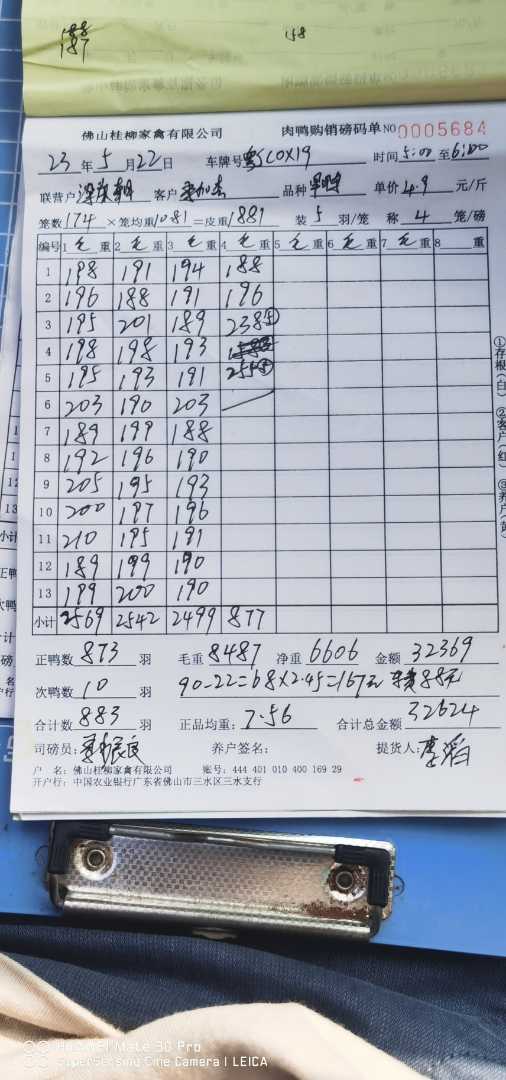 188
187
158
佛山桂柳家禽有限公司 肉鸭购销磅码单 NO 0005684
23 年 5 月 22 日 车牌号 时间 5:00 至 6:00
联营户 客户 品种 单价 4.9 元/斤
笼数 174 ×笼均重 1081 =皮重 1881 装 5 羽/笼 称 4 笼/磅
编号 1 毛 重 2 毛 重 3 毛 重 4 毛 重 5 毛 重 6 毛 重 7 毛 重 8 重
1 198 191 194 188
2 196 188 191 196
3 195 201 189 238⑤
4 198 198 193
5 195 193 191
6 203 190 203
7 189 199 188
8 192 196 190
9 205 195 193
10 200 197 196
11 210 195 191
12 189 199 190
13 199 200 190
小计 2569 2542 2499 877
正鸭数 873 羽 毛重 8487 净重 6606 金额 32369
次鸭数 10 羽 90-22=68×2.45=167元 88元
合计数 883 羽 正品均重: 7.56 合计总金额 32624
司磅员: 养户签名: 提货人:
户 名: 佛山桂柳家禽有限公司 账号: 444 401 010 400 169 29
开户行: 中国农业银行广东省佛山市三水区三水支行
①存根(白) ②客户(红) ③养户(黄)
HUAWEI Mate 30 Pro
SuperSensing Cine Camera | LEICA